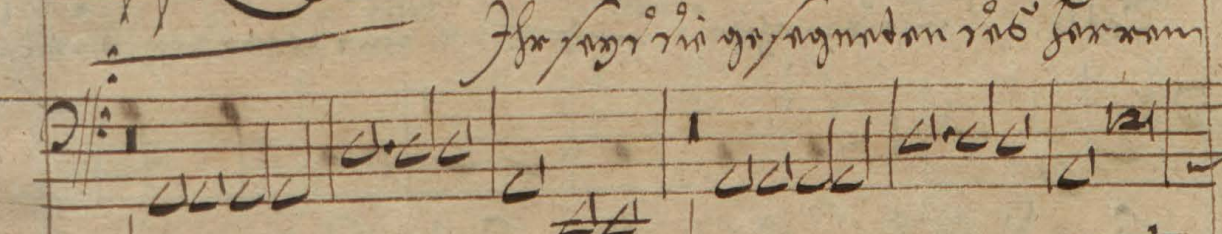 Ihr seyd die gesegneten des Herren